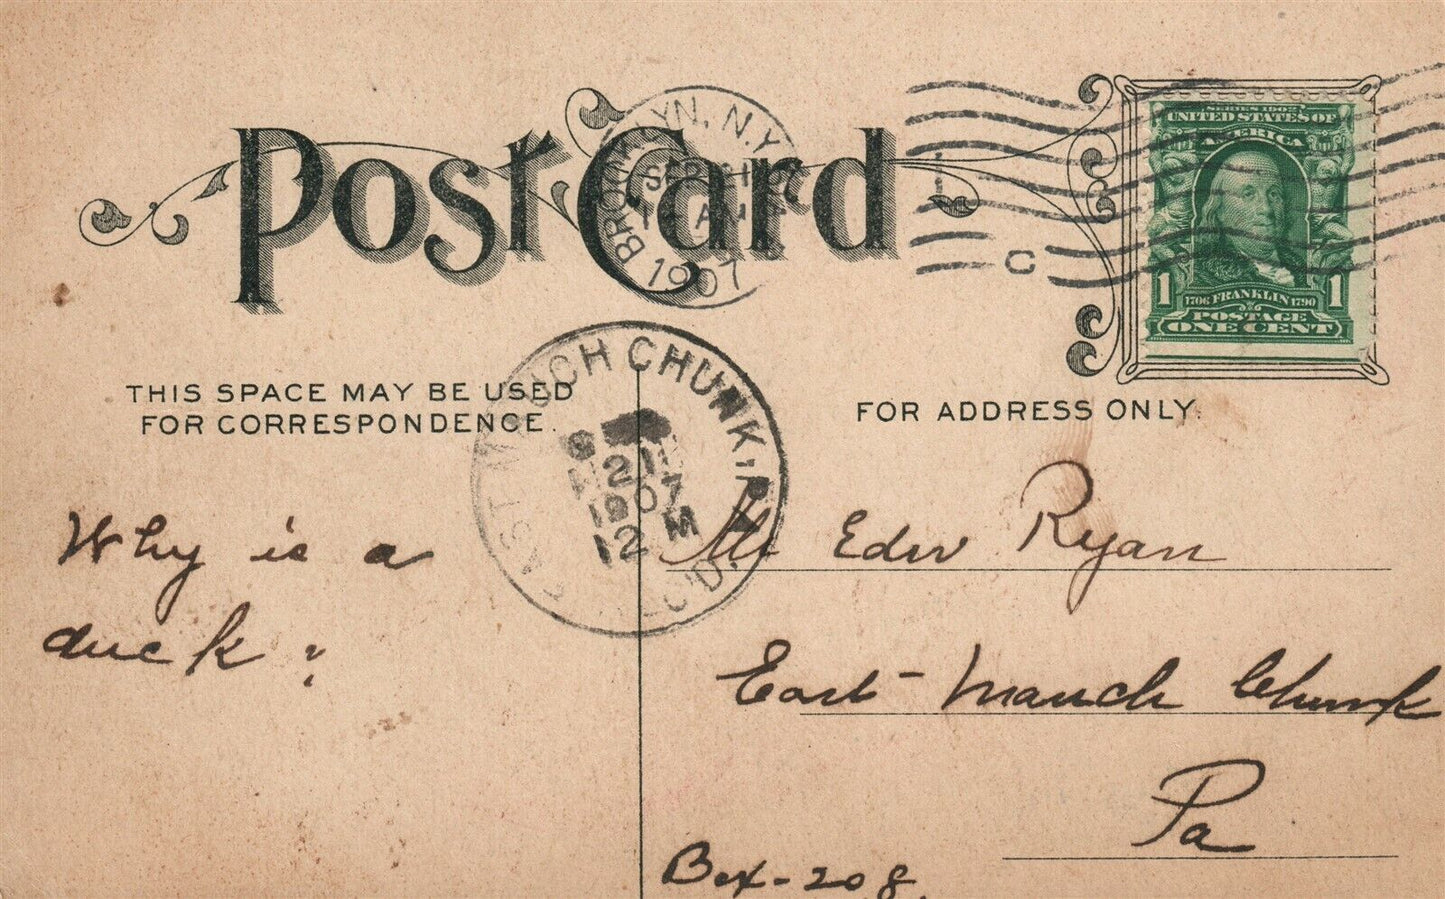 Post Card
BROOKLYN, N.Y.
SEP 1
1907
C
SERIES 1902
UNITED STATES OF
AMERICA
1 1706 FRANKLIN 1790 1
POSTAGE
ONE CENT
THIS SPACE MAY BE USED
FOR CORRESPONDENCE.
EAST MAUCH CHUNK, PA
2
1907
12 M
REC'D.
FOR ADDRESS ONLY.
Why is a
duck?
Mr Edw Ryan
East-Mauch Chunk
Pa
Box-208.